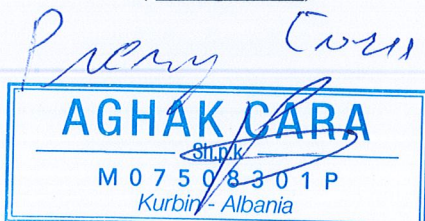 AGHAK CARA
Sh.p.k
M07508301P
Kurbin - Albania